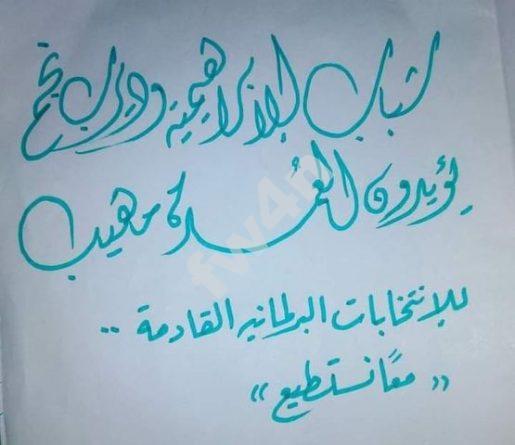 شباب الإبراهيمية وديرب نجم
يؤيدون العمدة مهيب
للإنتخابات البرلمانيه القادمة ..
"معًا نستطيع"
fw4n